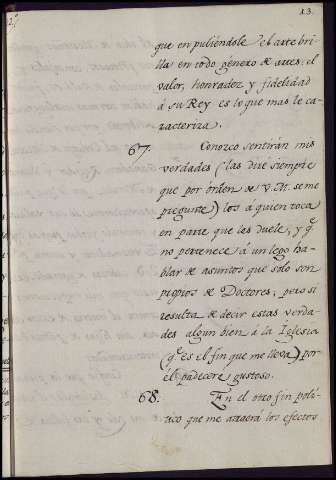 23.
que en puliéndole el arte bri-
lla en todo género de artes: el
valor, honradez y fidelidad
á su Rey es lo que mas le ca-
racteriza.
67. Conozco sentirán mis
verdades (las diré siempre
que por órden de V. M. se me
pregunte) los á quien toca
en parte que les duele, y q.e
no pertenece á un lego ha-
blar de asuntos que solo son
propios de Doctores; pero si
resulta de decir estas verda-
des algun bien á la Iglesia
(q.e es el fin que me lleva) por
él padeceré gustoso.
68. En el otro fin polí-
tico que me atraerá los efectos